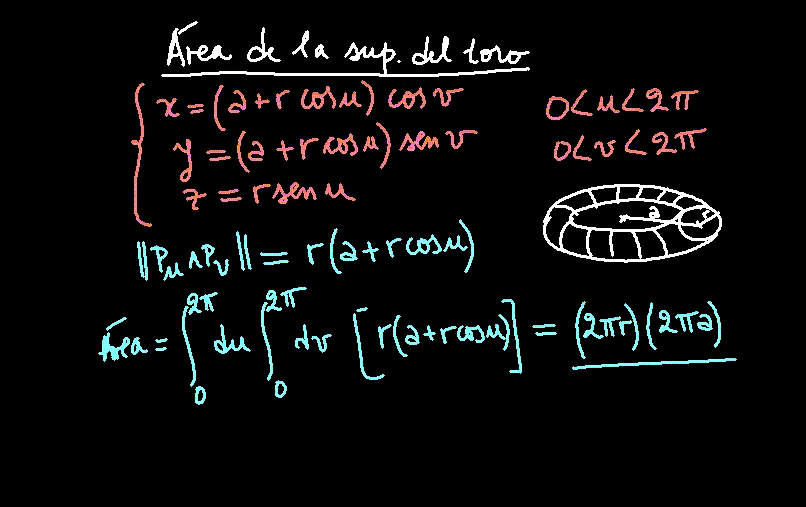 Área de la sup. del toro
x = (a + r cos u) cos v 0 < u < 2π
y = (a + r cos u) sen v 0 < v < 2π
z = r sen u
a r
‖P_u ∧ P_v‖ = r(a + r cos u)
Área = ∫_0^{2π} du ∫_0^{2π} dv [r(a + r cos u)] = (2πr)(2πa)